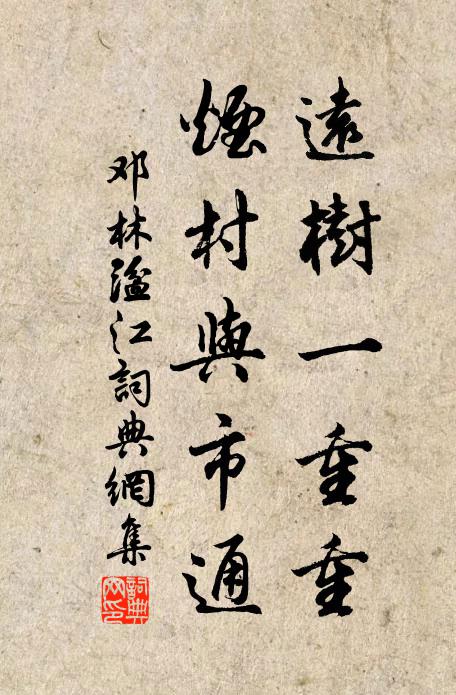 遠樹一重重
煙村與市通
邓林溢江詞典網集
詞典網印